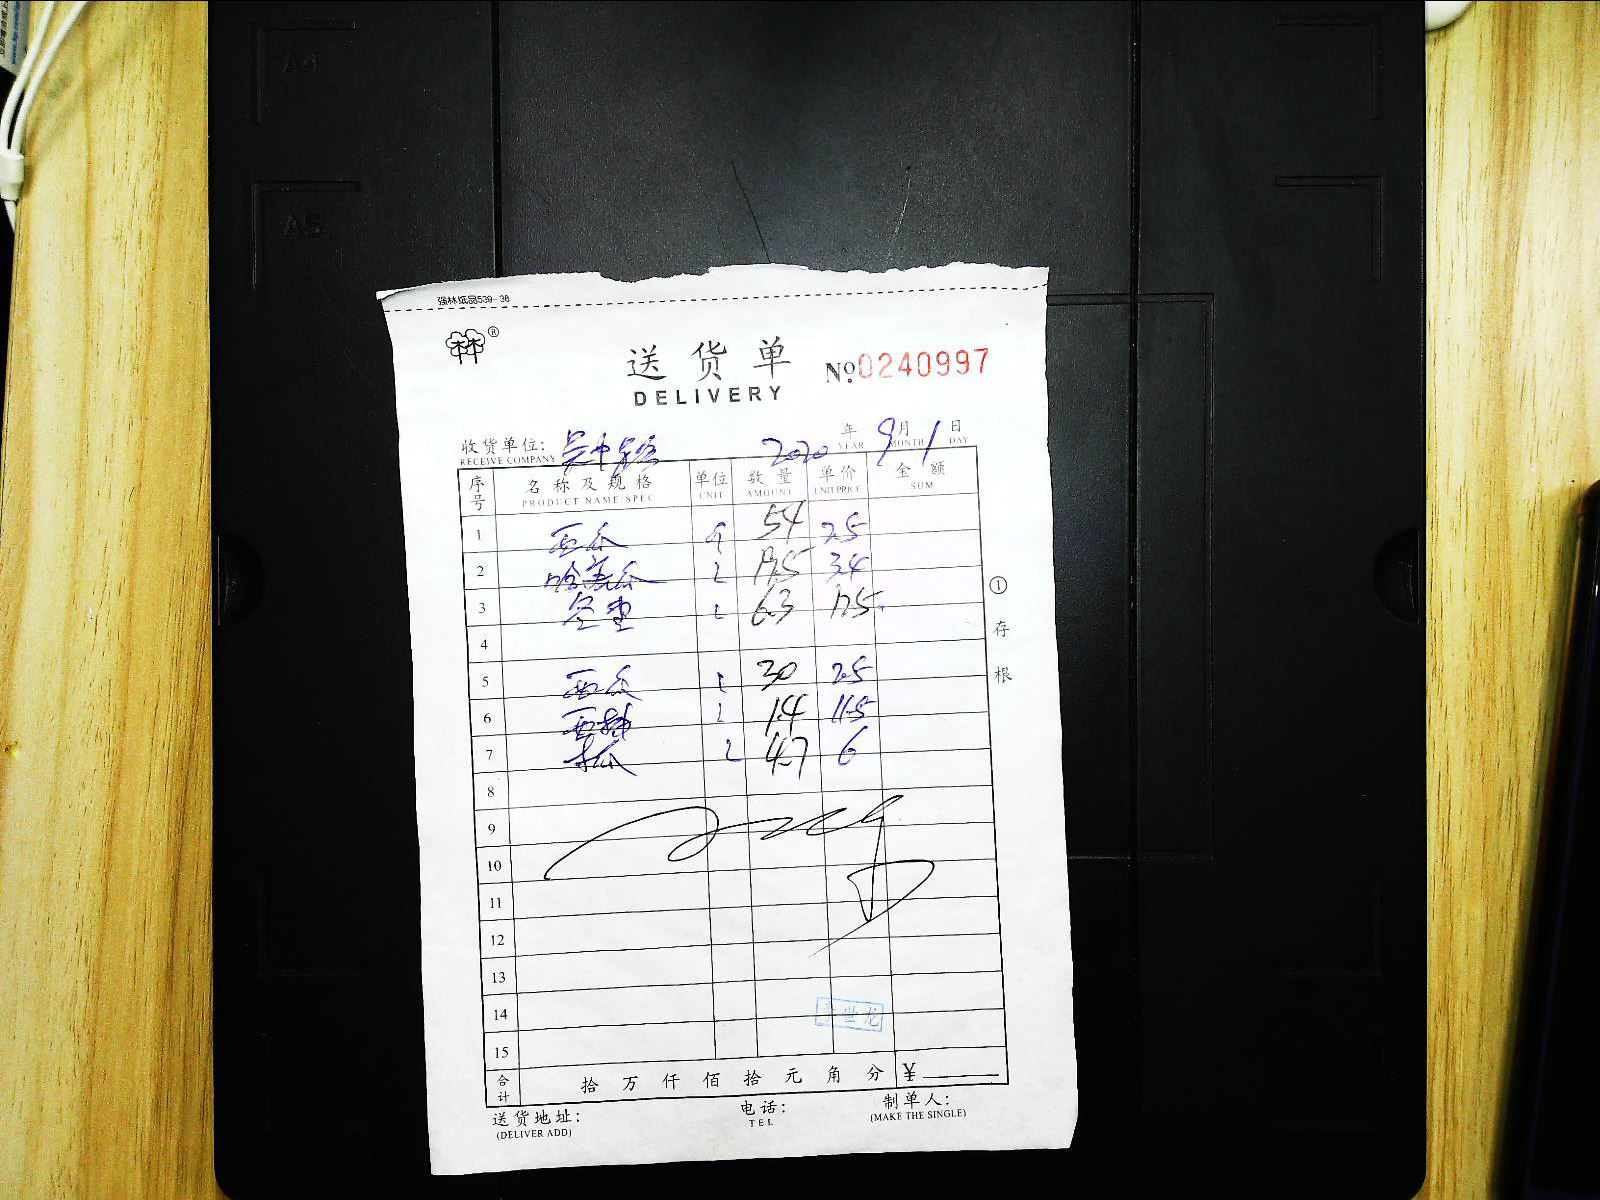 强林纸品539-38
林®
送货单 No.0240997
DELIVERY
收货单位: 2020 年 9 月 1 日
RECEIVE COMPANY YEAR MONTH DAY
序号 名称及规格 单位 数量 单价 金额
PRODUCT NAME SPEC UNIT AMOUNT UNIT PRICE SUM
1 西瓜 54 2.5
2 哈美瓜 17.5 3.4
3 冬枣 6.3 17.5
4
5 西瓜 30 2.5
6 西梅 1.4 11.5
7 4.7 6
8
9
10
11
12
13
14
15
合计 拾 万 仟 佰 拾 元 角 分 ¥
送货地址: 电话: 制单人:
(DELIVER ADD) TEL (MAKE THE SINGLE)
①存根